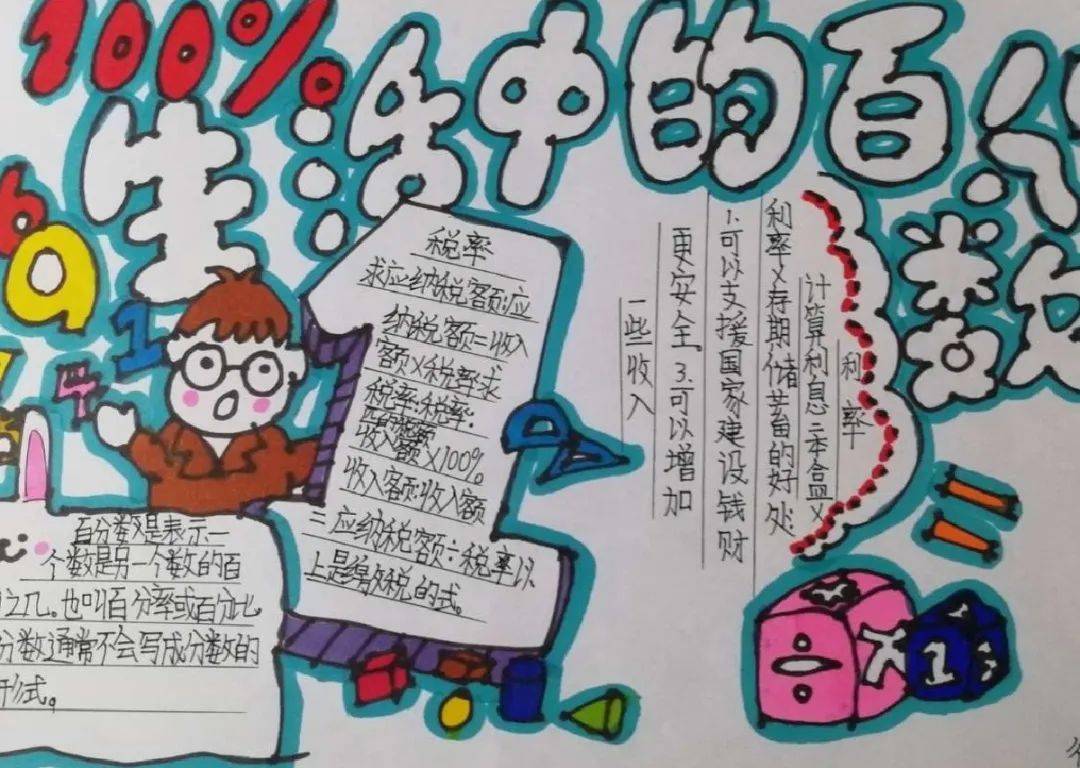 100%
生活中的百分
数
税率
求应纳税客额:应
纳税额=收入
额×税率求
税率:税率:
收入客额×100%。
收入客额:收入额
三应纳税额÷税率以
上是纳税的式。
百分数是表示一
个数是另一个数的百
之几。也叫百分率或百分比。
分数通常不会写成分数的
形式。
利率
计算利息二本盒×
利率×存期储蓄的好处
1.可以支援国家建设钱财
更安全。3.可以增加
一些收入
1
4
1